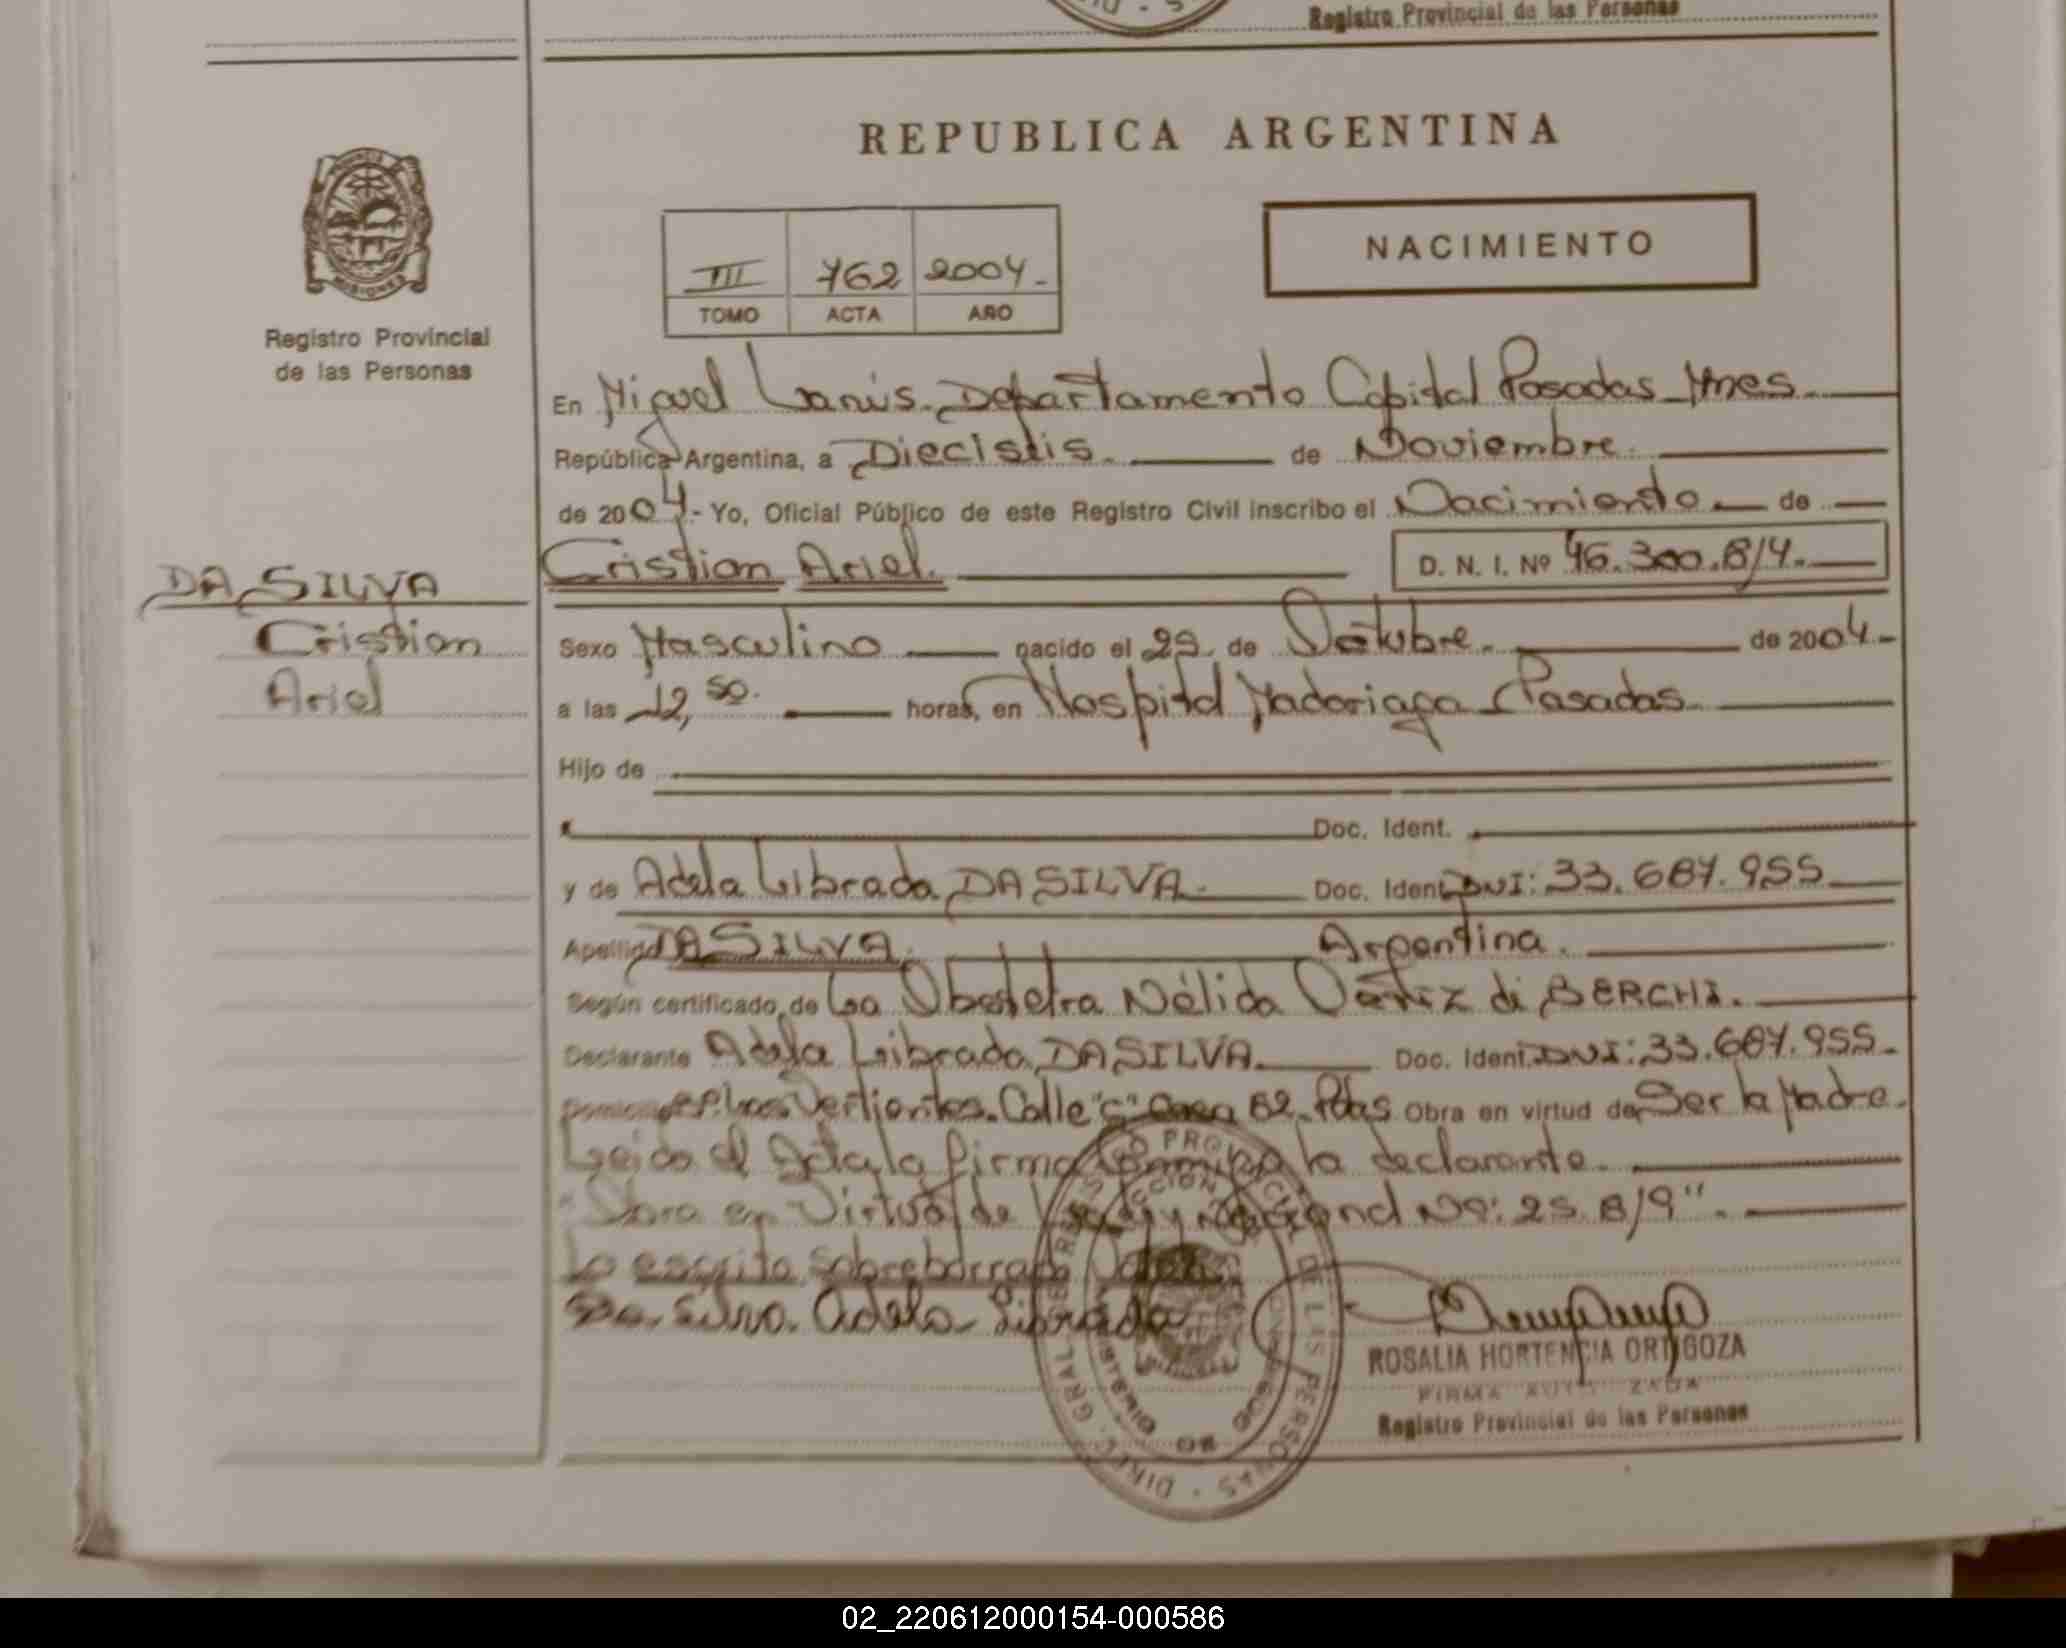 Registro Provincial de las Personas
REPUBLICA ARGENTINA
NACIMIENTO
III 762 2004.-
TOMO ACTA AÑO
PROVINCIA
MISIONES
Registro Provincial
de las Personas
En Miguel Lanús. Departamento Capital Posadas Mnes.
República Argentina, a Dieciseis. de Noviembre.
de 2004.- Yo, Oficial Público de este Registro Civil inscribo el Nacimiento de
Cristian Ariel. D. N. I. Nº 46.300.814.
DA SILVA
Cristian
Ariel
Sexo Masculino nacido el 29. de Octubre. de 2004.-
a las 12,50. horas, en Hospital Madariaga Posadas.
Hijo de
Doc. Ident.
y de Adela Librada DA SILVA. Doc. Ident. DNI: 33.687.955
Apellido DA SILVA. Argentina.
Según certificado de La Obstetra Nélida de BERCHI.
Declarante Adela Librada DA SILVA. Doc. Ident. DNI: 33.687.955.
Domicilio Las Vertientes. Calle "C" Casa 82. Pdas Obra en virtud de Ser la Madre.
Leido el Acta la firma la declarante.
"Obra en Virtud de Ley Nacional Nº: 25.819".
Lo escrito sobreborrado Vale.
Da Silva Adela Librada
DIREC. GRAL REGISTRO PROVINCIAL DE LAS PERSONAS
ROSALIA HORTENCIA ORTIGOZA
FIRMA AUTORIZADA
Registro Provincial de las Personas
02_220612000154-000586